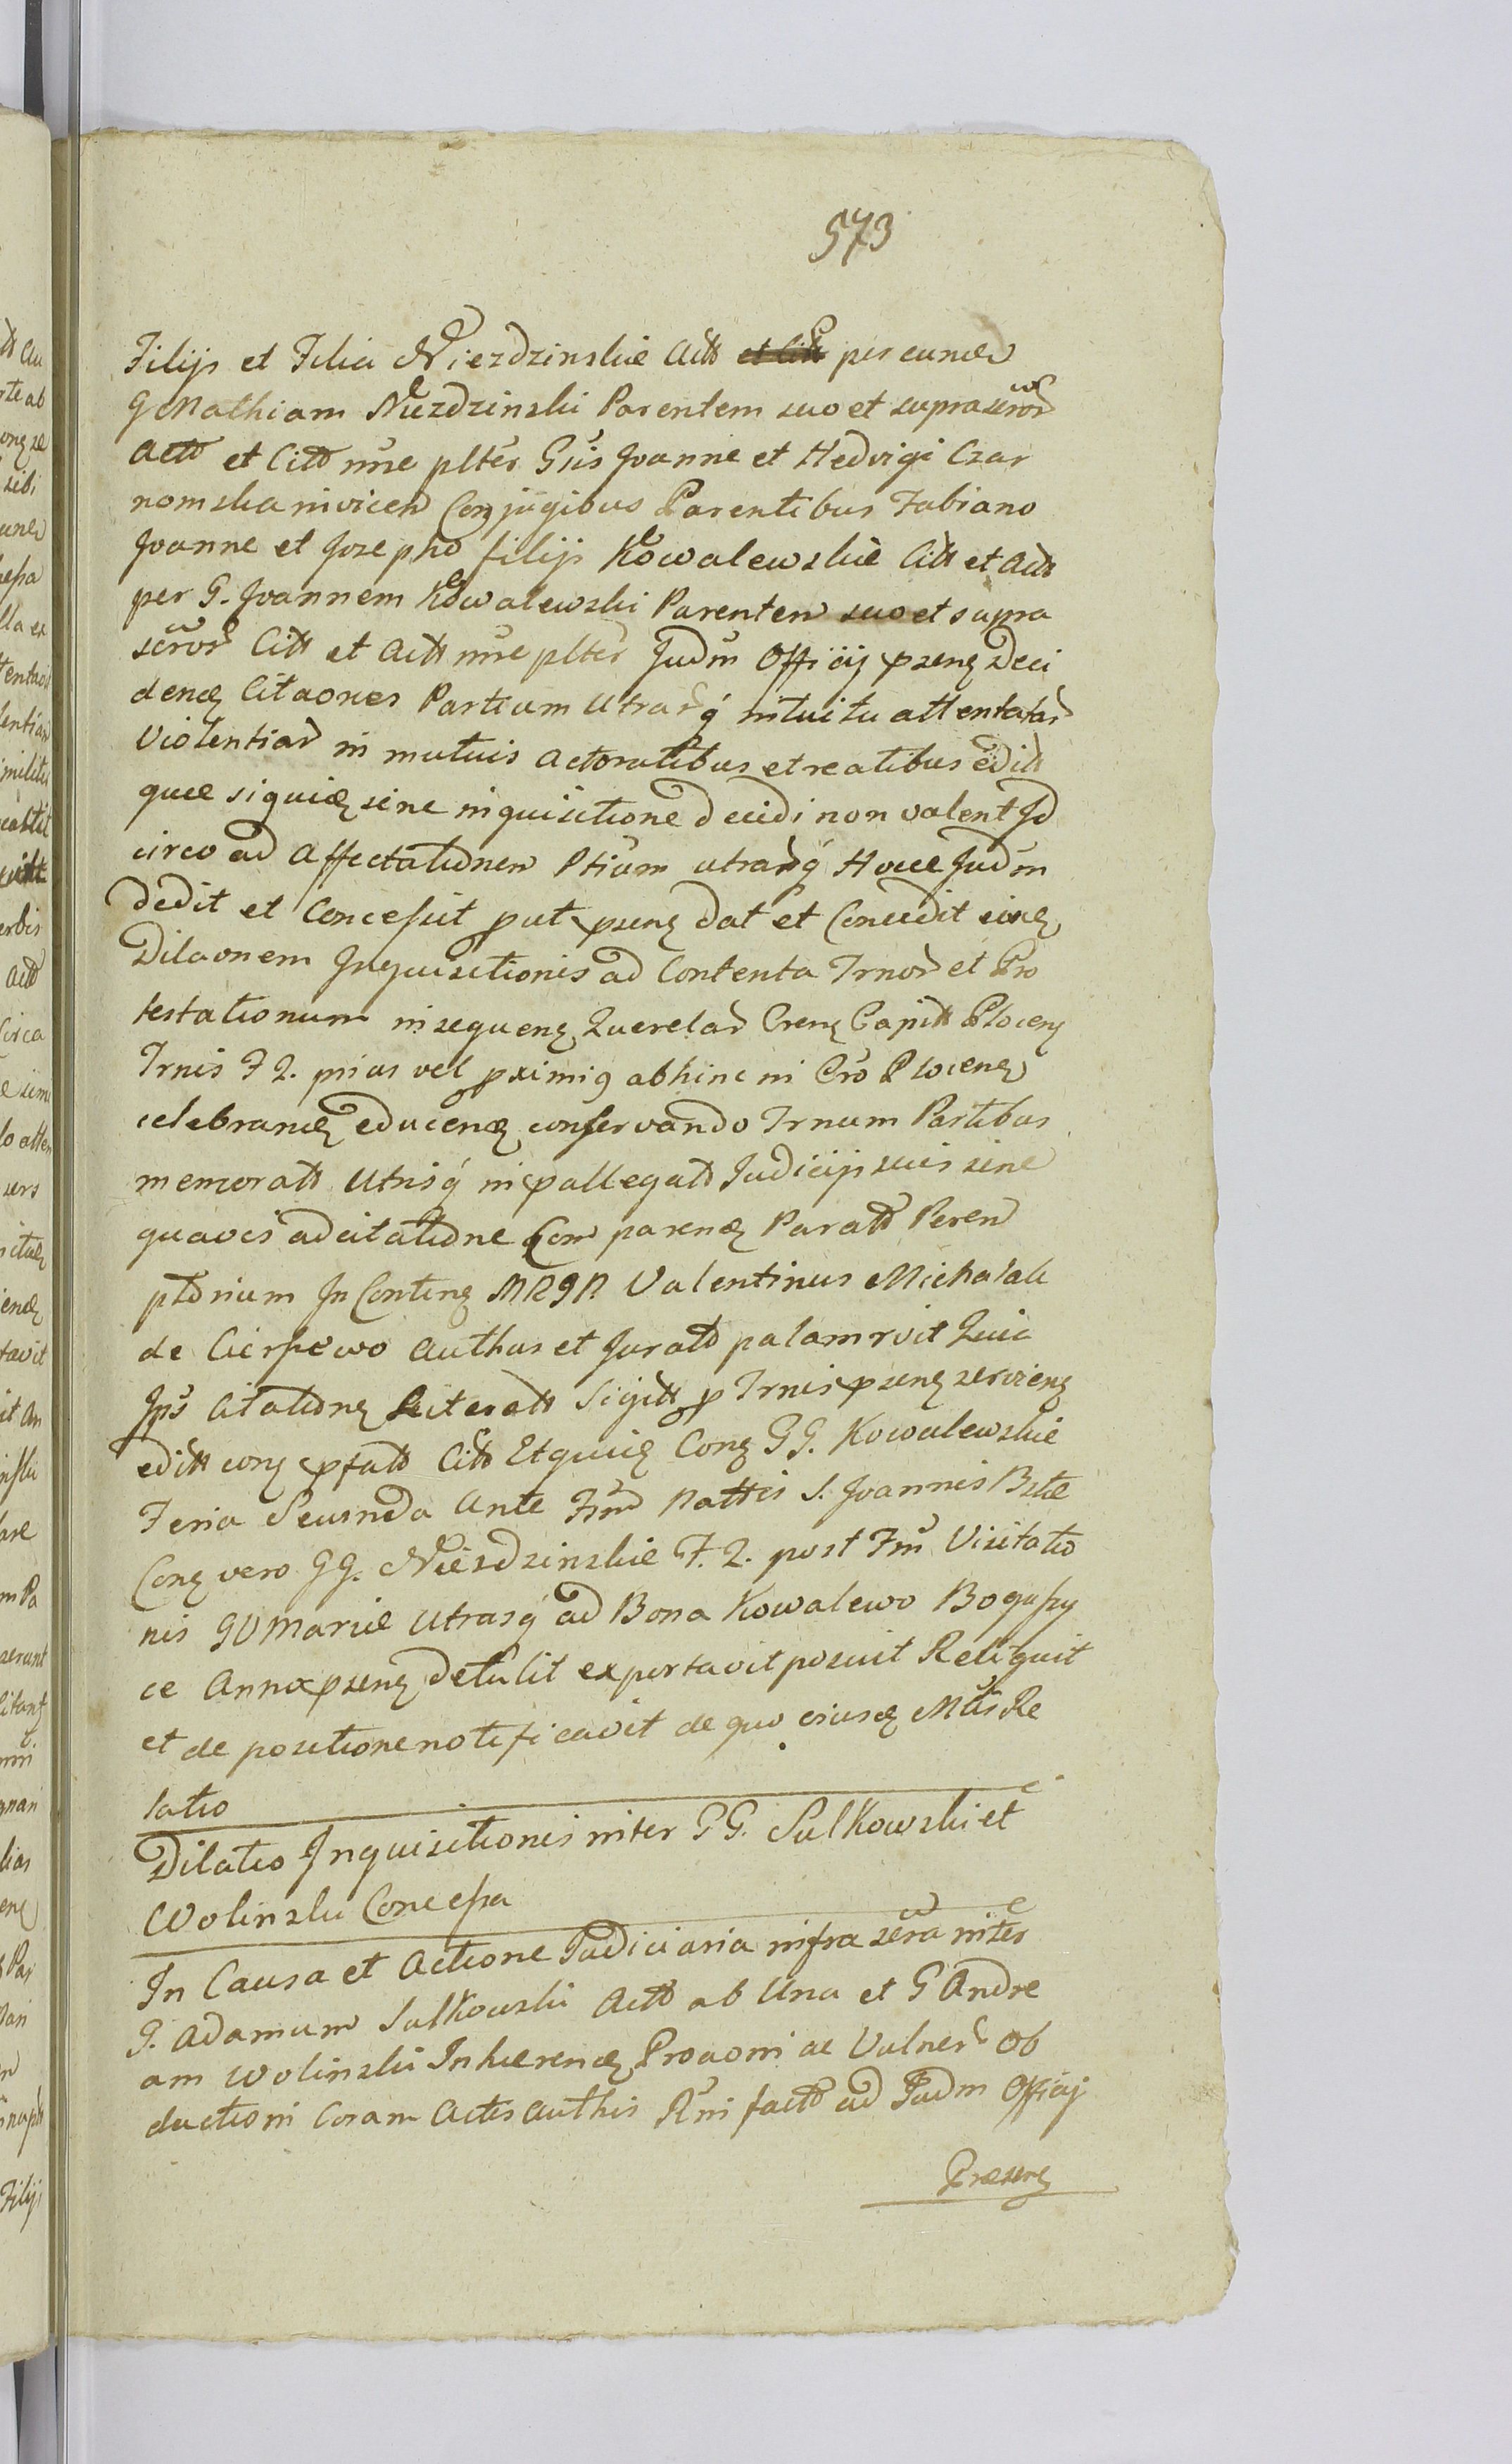 573
Filijs et Filia Niezdzinskie Actt et Citt per eund
G Mathiam Niezdzinski Parentem suo et suprascror
Actt et Citt nne plter Gsis Joanne et Hedvigi Czar
nomska invicem Conjugibus Parentibus Fabiano
Joanne et Josepho filijs Kowalewskie Citt et Actt
per G. Joannem Kowalewski Parentem suo et supra
scror Citt et Actt nne plter Judm Officij psens Deci
dend Citaones Partium Utrarq intuitu attentatar
Violentiar in mutuis Actoratibus et reatibus editt
quae siquid sine inquisitione decidi non valent Id
circo ad affectationem Ptium utrarq Hocce Judm
dedit et Concessit put psens dat et Concedit eisd
Dilaonem Inquisitionis ad Contenta Trnor et Pro
testationum insequens Querelar Crens Capitt Plocens
Trnis F 2. prius vel pximis abhinc in Cro Plocens
celebrand educend conservando Trnum Partibus
memoratt Utrisq in pallegatt Judicijs suis sine
quavis adcitatione Comparend Paratt Perem
ptorium In Contens MRGP. Valentinus Michalak
de Cierpewo Authus et Juratt palam rvit Quia
Jps Citationes Literatt Sigitt p Trnis psens serviens
editt cons pfatt Citt Et quid Cons GG. Kowalewskie
Feria Secunda Ante Fm Nattis S. Joannis Btae
Cons vero GG. Niezdzinskie F. 2. post Fm Visitatio
nis BV Mariae Utrasq ad Bona Kowalewo Boguszy
ce Anno psens detulit exportavit posuit Reliquit
et de positione notificavit de quo ejusd Mtis Re
latio
Dilatio Inquisitionis inter GG. Sulkowski et
Wolinski Concessa
In Causa et Actione Judiciaria infrascra inter
G. Adamum Sulkowski Actt ab Una et G Andre
am Wolinski Inhaerend Proaoni ac Vulner Ob
ductioni Coram Actis Authis Rni factt ad Judm Officij
Praesens